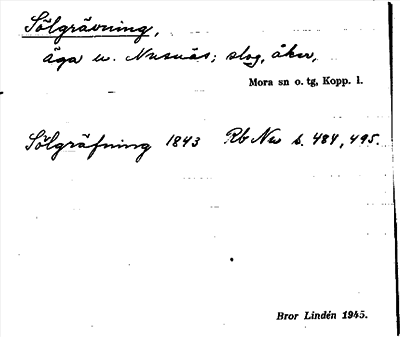 Sölgrävning,
äga u. Nusnäs; slog, åker,
Mora sn o. tg, Kopp. l.
Sölgräfning 1843 Rb Nus s. 484, 495.
Bror Lindén 1945.